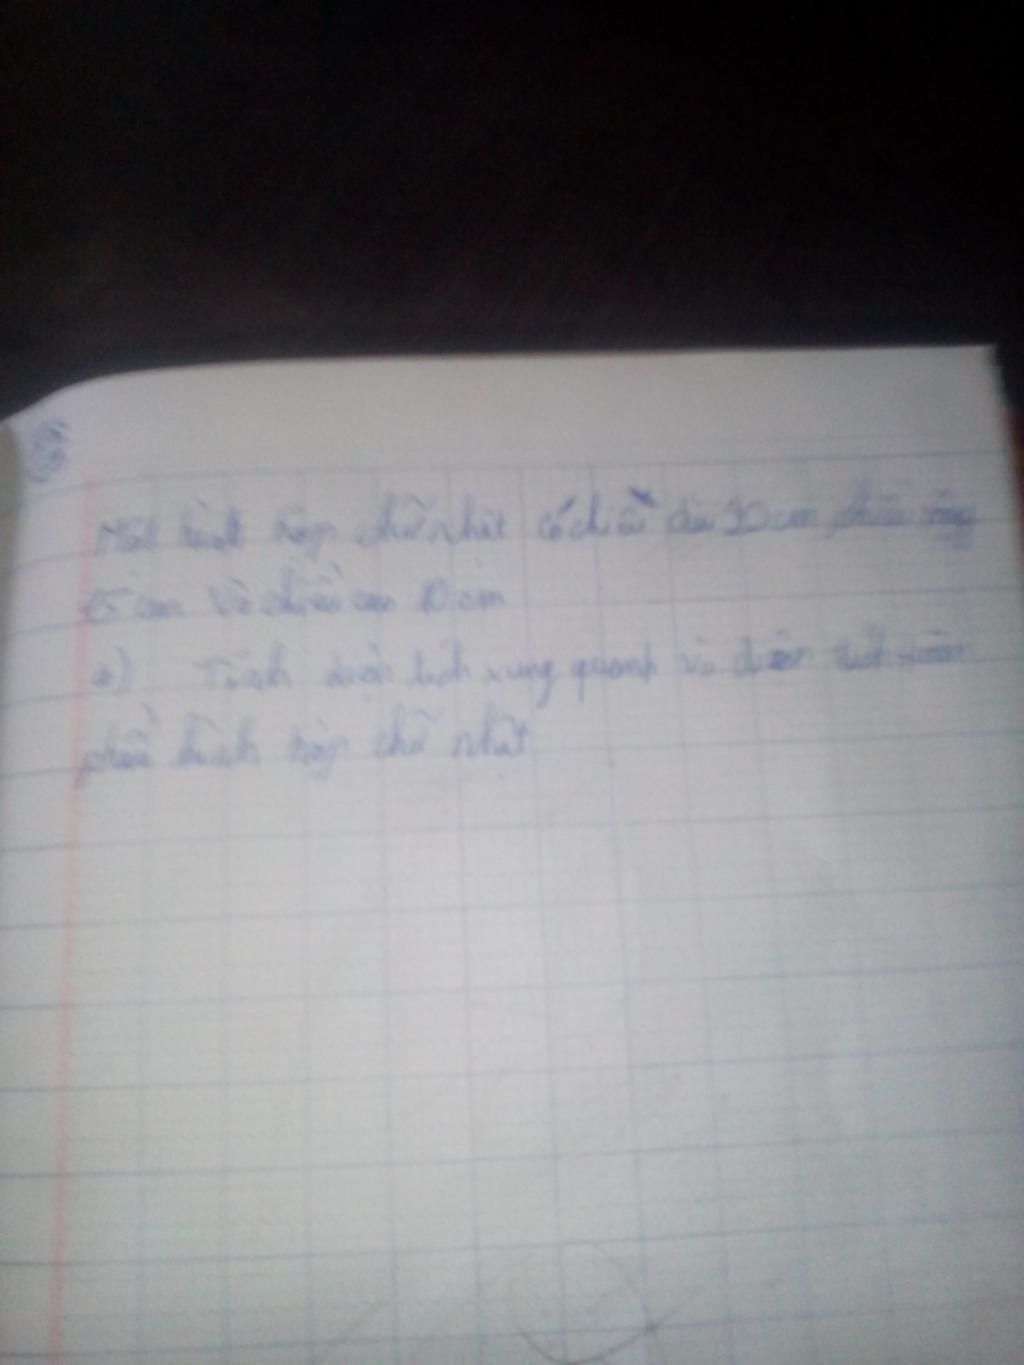 Một hình hộp chữ nhật có chiều dài 20 cm, chiều rộng
15 cm và chiều cao 10 cm
a) Tính diện tích xung quanh và diện tích toàn
phần hình hộp chữ nhật